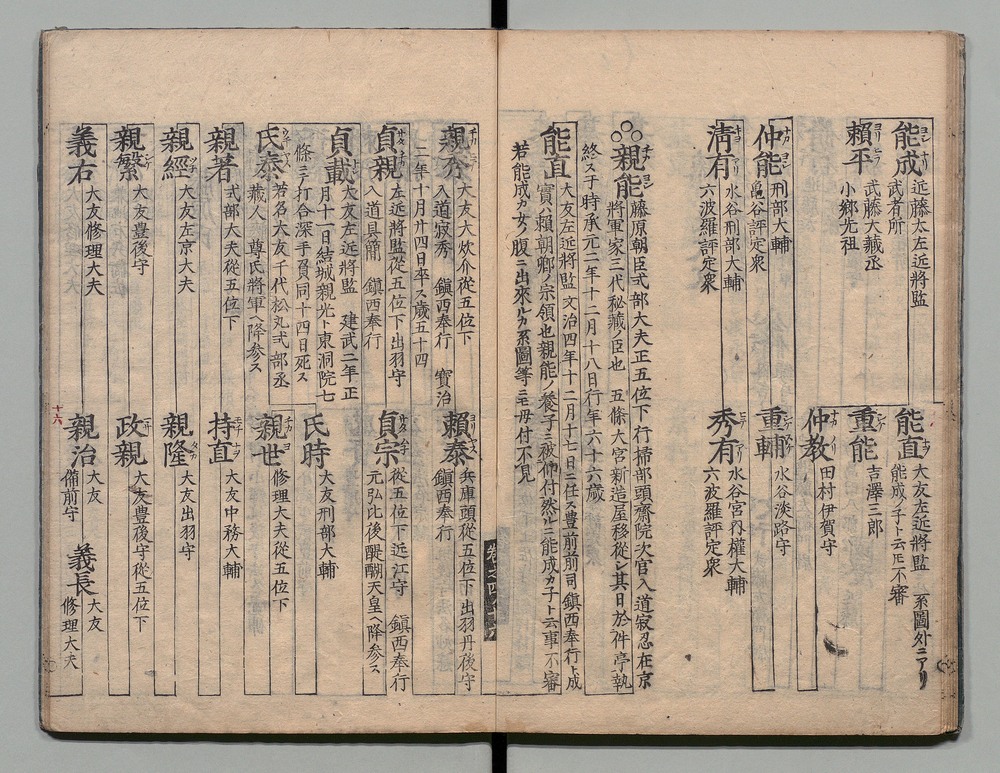 能成
近藤太左近將監
武者所
能直
大友左近將監
能成ノ子ト云𪜈不審
系圖外ニアリ
賴平
武藤大藏丞
小鄉先祖
重能
吉澤三郎
仲教
田村伊賀守
仲能
刑部大輔
亀谷評定衆
重輔
水谷淡路守
清有
水谷刑部大輔
六波羅評定衆
秀有
水谷宮内權大輔
六波羅評定衆
親能
藤原朝臣式部大夫正五位下行掃部頭齋院次官入道寂忍在京
將軍家三代秘藏ノ臣也 五條大宮新造屋移從シ其日於件亭執
終ス于時承元二年十二月十八日行年六十六歲
能直
大友左近將監文治四年十二月十七日ニ任ス豊前前司鎮西奉行ト成
實ハ賴朝鄉ノ宗領也親能ノ養子ニ被仰付然ルニ能成カ子ト云事不審
若能成カ女ノ腹ニ出來ルカ系圖等ニモ毋付不見
親秀
大友大炊介從五位下
入道寂秀 鎮西奉行 寶治
二年十月廿四日卒ス歲五十四
賴泰
兵庫頭從五位下出羽丹後守
鎮西奉行
貞親
左近將監從五位下出羽守
入道具簡 鎮西奉行
貞宗
從五位下近江守 鎮西奉行
元弘比後醍醐天皇ヘ降参ス
貞載
大友左近將監 建武二年正
月十一日結城親光ト東洞院七
條ニテ打合深手ヲ負同十四日死ス
氏時
大友刑部大輔
氏泰
若名大友千代松丸式部丞
藏人 尊氏將軍ヘ降参ス
親世
修理大夫從五位下
親著
式部大夫從五位下
持直
大友中務大輔
親經
大友左京大夫
親隆
大友出羽守
親繁
大友豊後守
政親
大友豊後守從五位下
義右
大友修理大夫
親治
大友
備前守
義長
大友
修理大夫
十六